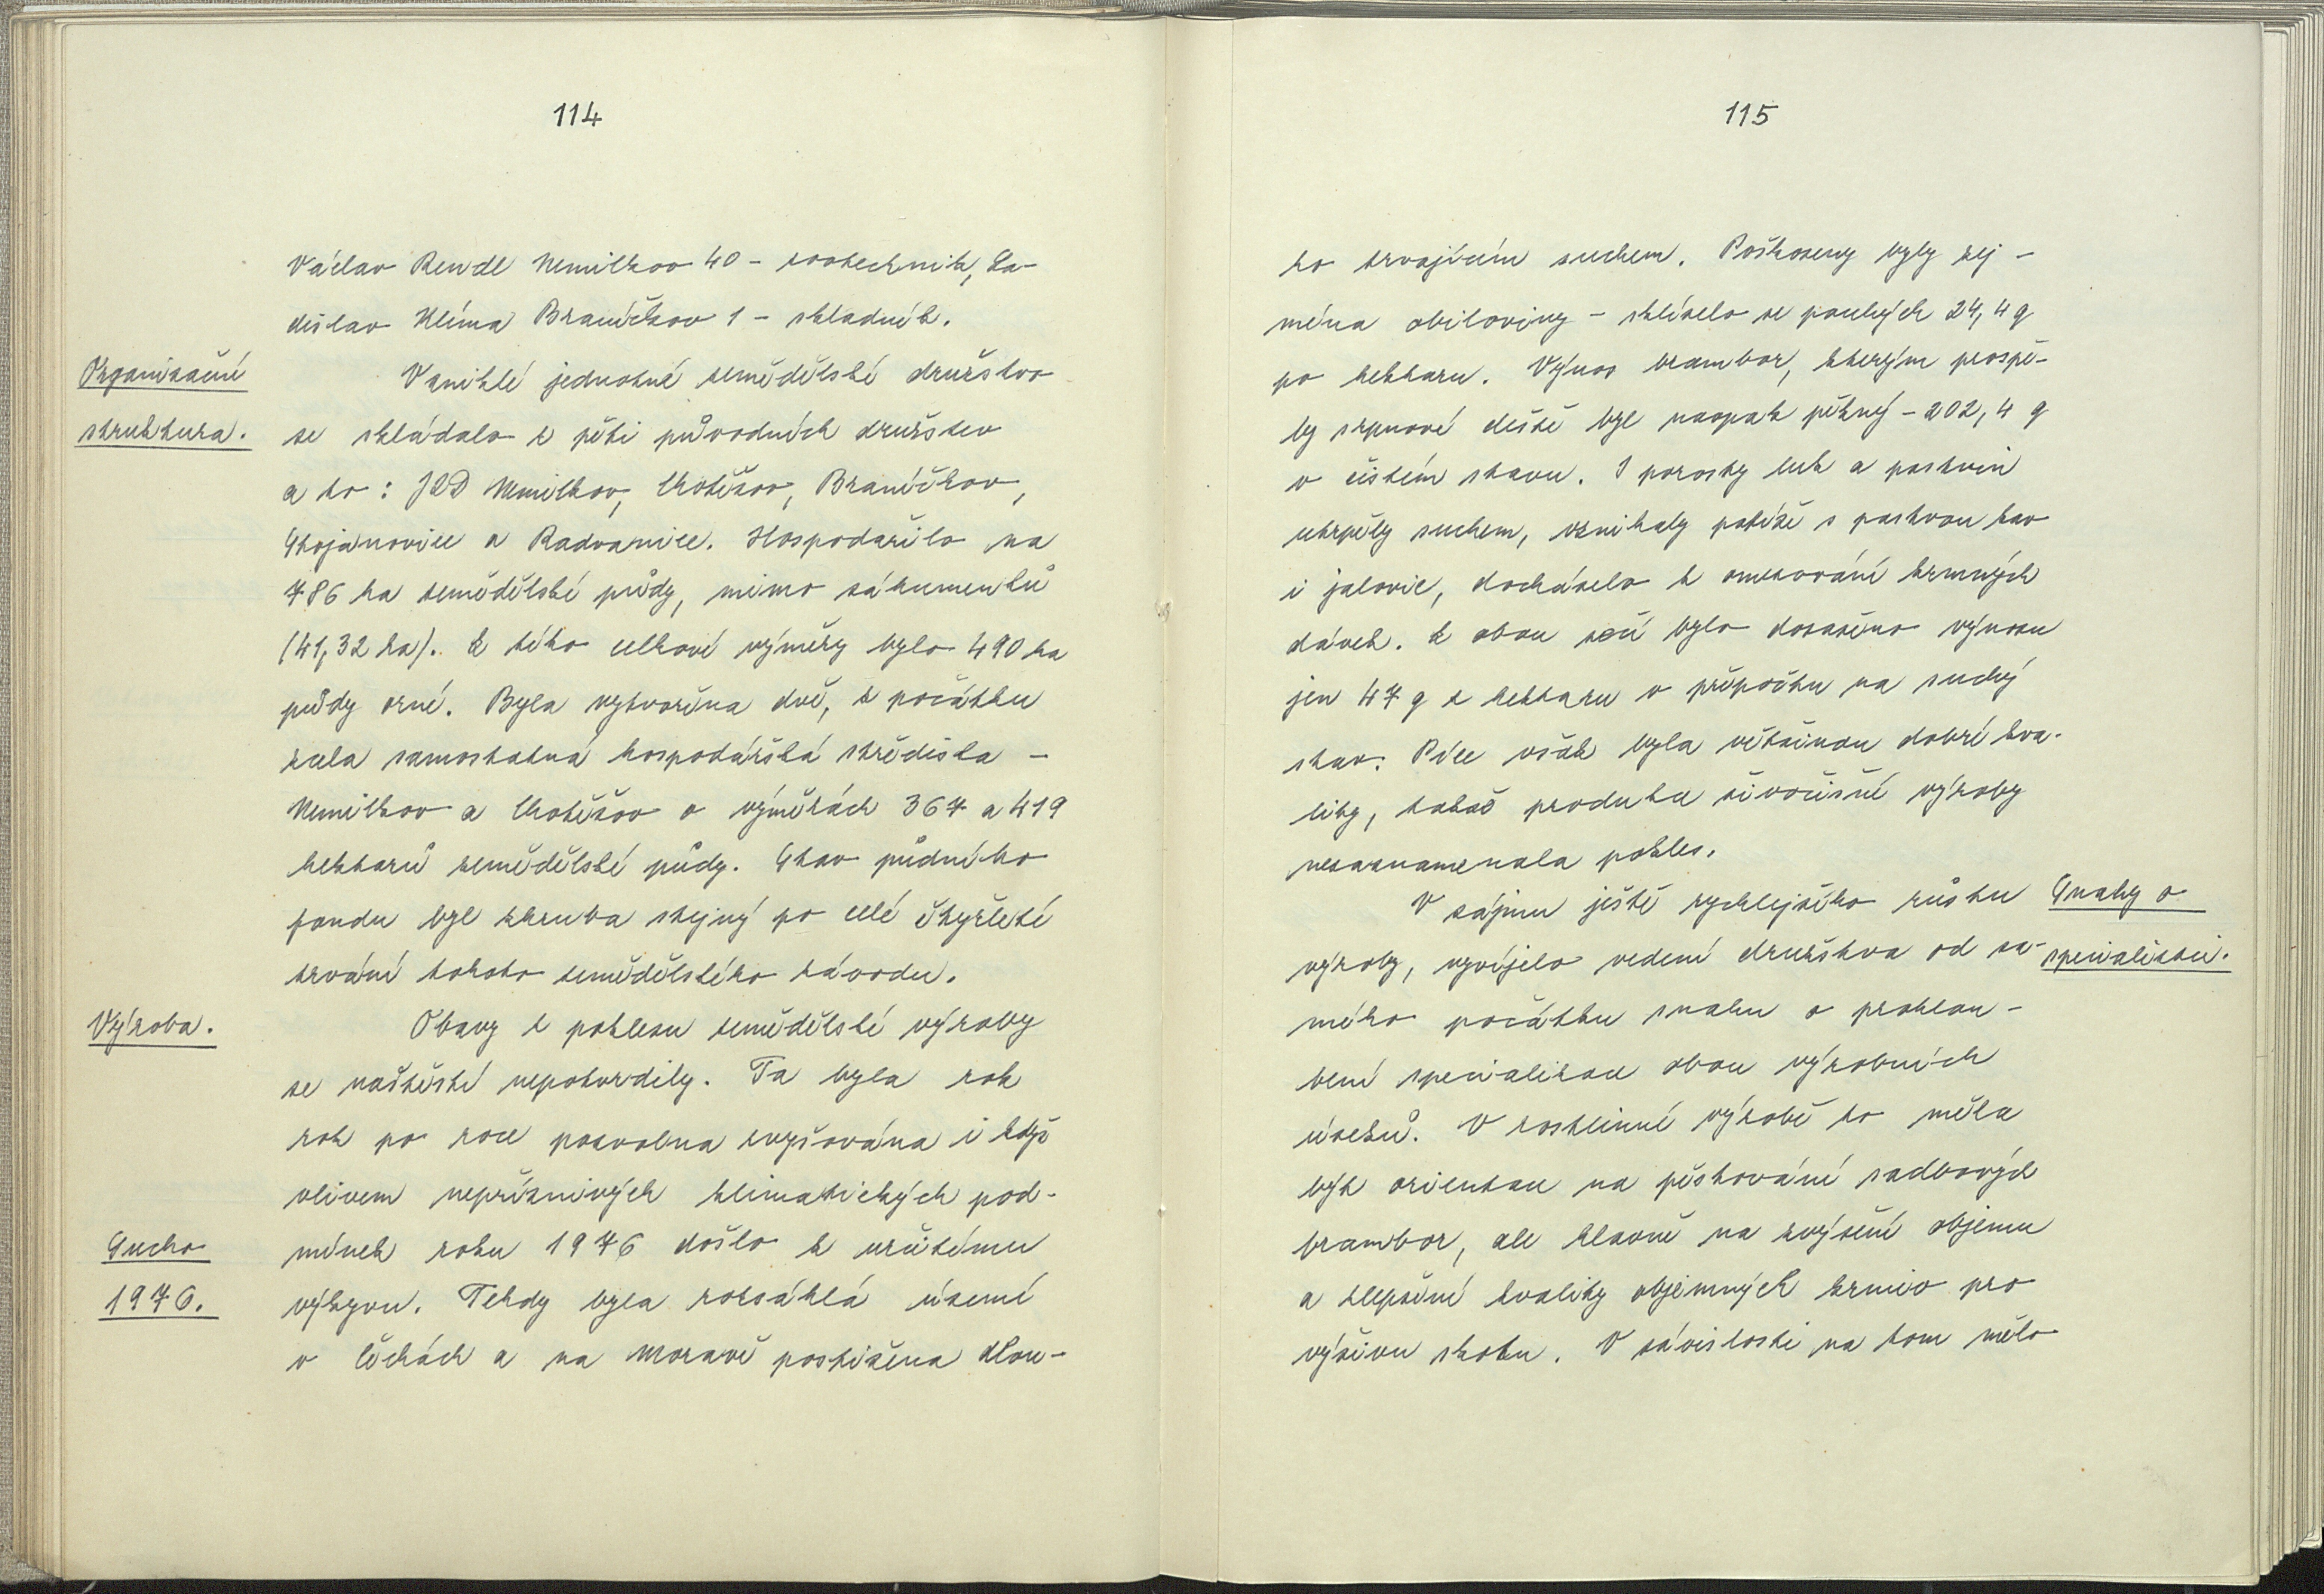 114
Václav Rendl Nemilkov 40 - zootechnik, La-
dislav Klíma Braníčkov 1 - skladník.
Organizační
struktura.
Vzniklé jednotné zemědělské družstvo
se skládalo z pěti původních družstev
a to: JZD Nemilkov, Chotěšov, Braníčkov,
Stojanovice a Radvanice. Hospodařilo na
786 ha zemědělské půdy, mimo záhumenků
(41,32 ha). Z této celkové výměry bylo 490 ha
půdy orné. Byla vytvořena dvě, z počátku
zcela samostatná hospodářská střediska -
Nemilkov a Chotěšov o výměrách 367 a 419
hektarů zemědělské půdy. Stav půdního
fondu byl zhruba stejný po celé čtyřleté
trvání tohoto zemědělského závodu.
Výroba.
Obavy z poklesu zemědělské výroby
se naštěstí nepotvrdily. Ta byla rok
rok po roce pozvolna zvyšována i když
vlivem nepříznivých klimatických pod-
Sucho
1976.
mínek roku 1976 došlo k určitému
výkyvu. Tehdy byla rozsáhlá území
v Čechách a na Moravě postižena dlou-
115
ho trvajícím suchem. Poškozeny byly zej-
ména obiloviny - sklízelo se pouhých 24,4 q
po hektaru. Výnos brambor, kterým prospě-
ly srpnové deště byl naopak pěkný - 202,4 q
v čistém stavu. I porosty luk a pastvin
utrpěly suchem, vznikaly potíže s pastvou krav
i jalovic, docházelo k omezování krmných
dávek. Z obou sečí bylo dosaženo výnosu
jen 47 q z hektaru v přepočtu na suchý
stav. Píce však byla většinou dobré kva-
lity, takže produkce živočišné výroby
nezaznamenala pokles.
Snahy o
specializaci.
V zájmu ještě rychlejšího růstu
výroby, vyvíjelo vedení družstva od sa-
mého počátku snahu o prohlou-
bení specializace obou výrobních
úseků. V rostlinné výrobě to měla
být orientace na pěstování sadbových
brambor, ale hlavně na zvýšení objemu
a zlepšení kvality objemných krmiv pro
výživu skotu. V závislosti na tom mělo